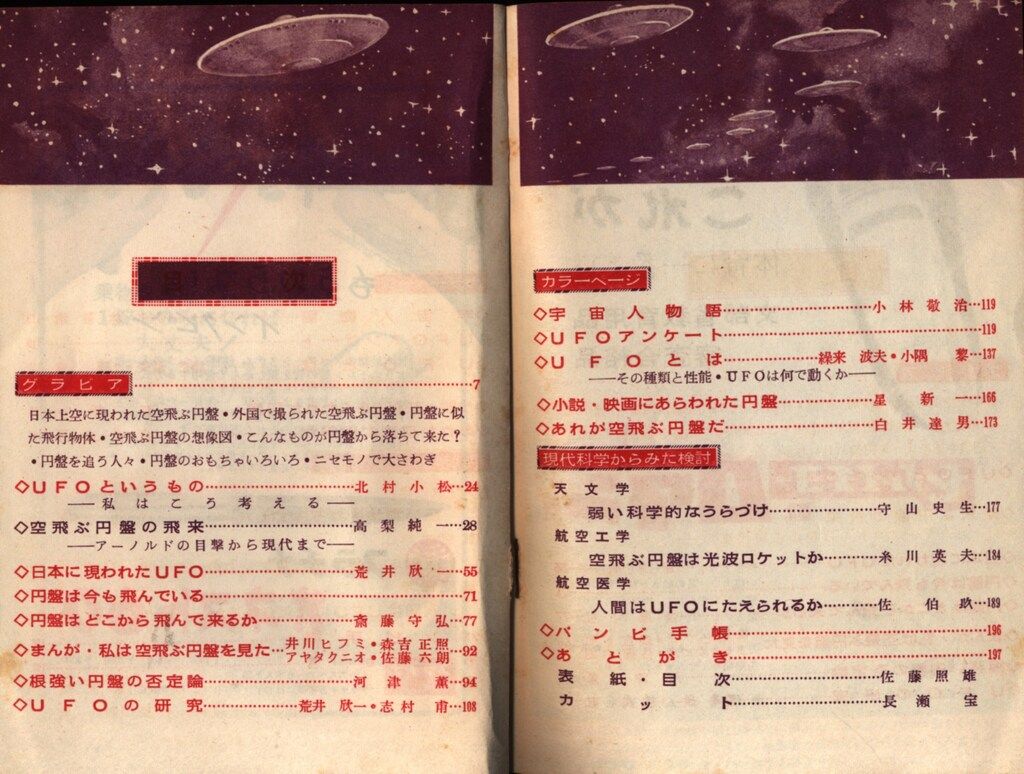 目次
グラビア……7
日本上空に現われた空飛ぶ円盤・外国で撮られた空飛ぶ円盤・円盤に似
た飛行物体・空飛ぶ円盤の想像図・こんなものが円盤から落ちて来た？
・円盤を追う人々・円盤のおもちゃいろいろ・ニセモノで大さわぎ
◇UFOというもの……北村小松…24
――私はこう考える――
◇空飛ぶ円盤の飛来……高梨純一…28
――アーノルドの目撃から現代まで――
◇日本に現われたUFO……荒井欣一…55
◇円盤は今も飛んでいる……71
◇円盤はどこから飛んで来るか……斎藤守弘…77
◇まんが・私は空飛ぶ円盤を見た…井川ヒフミ・森吉正照
アヤタクニオ・佐藤六朗…92
◇根強い円盤の否定論……河津薫…94
◇UFOの研究……荒井欣一・志村甫…108
カラーページ
◇宇宙人物語……小林敬治…119
◇UFOアンケート……119
◇UFOとは……繰来波夫・小隅黎…137
――その種類と性能・UFOは何で動くか――
◇小説・映画にあらわれた円盤……星新一…166
◇あれが空飛ぶ円盤だ……白井達男…173
現代科学からみた検討
天文学
弱い科学的なうらづけ……守山史生…177
航空工学
空飛ぶ円盤は光波ロケットか……糸川英夫…184
航空医学
人間はUFOにたえられるか……佐伯玖…189
◇バンビ手帳……196
◇あとがき……197
表紙・目次……佐藤照雄
カット……長瀬宝